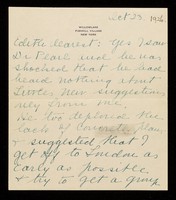 Oct 23. 1926
WALLOWLAND
PURCHELL VILLAGE
NEW YORK
Edith dearest: Yes I saw
Dr Pearl and he was
shocked that he had
heard nothing about
Little's new suggestions
only from me.
He too deplored the
lack of Concrete Plan
& suggested that I
get Hy to London as
early as possible
& try to get a group